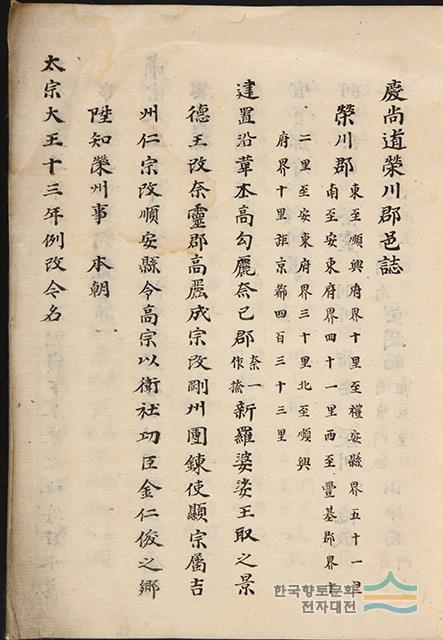 慶尚道榮川郡邑誌
榮川郡
東至順興府界十里至禮安縣界五十一里
南至安東府界四十一里西至豐基郡界十
二里至安東府界三十里北至順興
府界十里距京都四百三十三里
建置沿革本高勾麗奈已郡奈一作㮈新羅婆娑王取之景
德王改奈靈郡高麗成宗改剛州團鍊使顯宗屬吉
州仁宗改順安縣令高宗以衛社功臣金仁俊之鄉
陞知榮州事本朝
太宗大王十三年例改今名
한국향토문화
전자대전